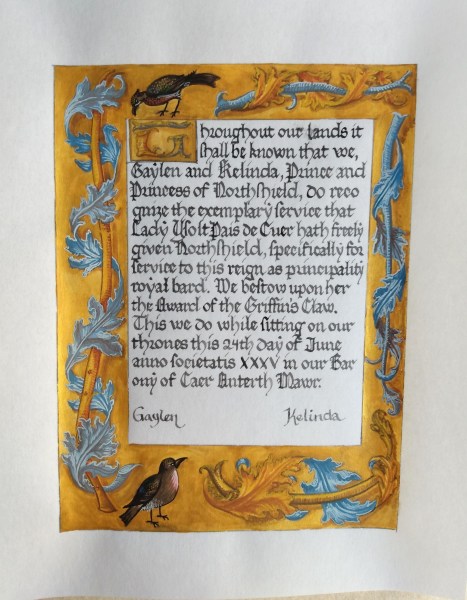 Throughout our lands it
shall be known that we,
Gaylen and Kelinda, Prince and
Princess of Northshield, do reco
gnize the exemplary service that
Lady Ysolt Pais de Cuer hath freely
given Northshield, specifically for
service to this reign as principality
royal bard. We bestow upon her
the Award of the Griffin's Claw.
This we do while sitting on our
thrones this 24th day of June
anno societatis XXXV in our Bar
ony of Caer Anterth Mawr.
Gaylen Kelinda